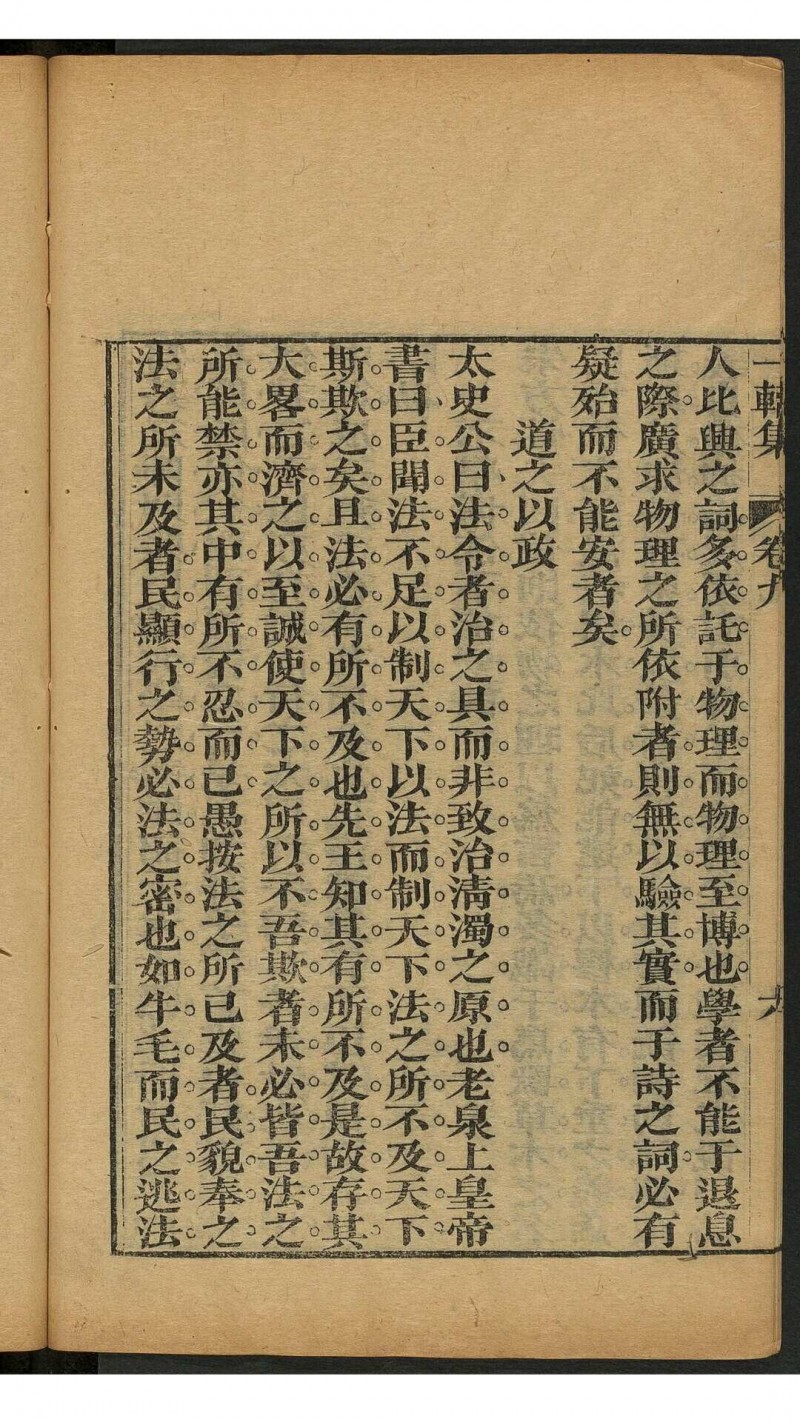 一軒集 卷九 六
人比興之詞多依託于物理而物理至博也學者不能于退息
之際廣求物理之所依附者則無以驗其實而于詩之詞必有
疑殆而不能安者矣
道之以政
太史公曰法令者治之具而非致治淸濁之原也老泉上皇帝
書曰臣聞法不足以制天下以法而制天下法之所不及天下
斯欺之矣且法必有所不及也先王知其有所不及是故存其
大畧而濟之以至誠使天下之所以不吾欺者未必皆吾法之
所能禁亦其中有所不忍而已愚按法之所已及者民貌奉之
法之所未及者民顯行之勢必法之密也如牛毛而民之逃法